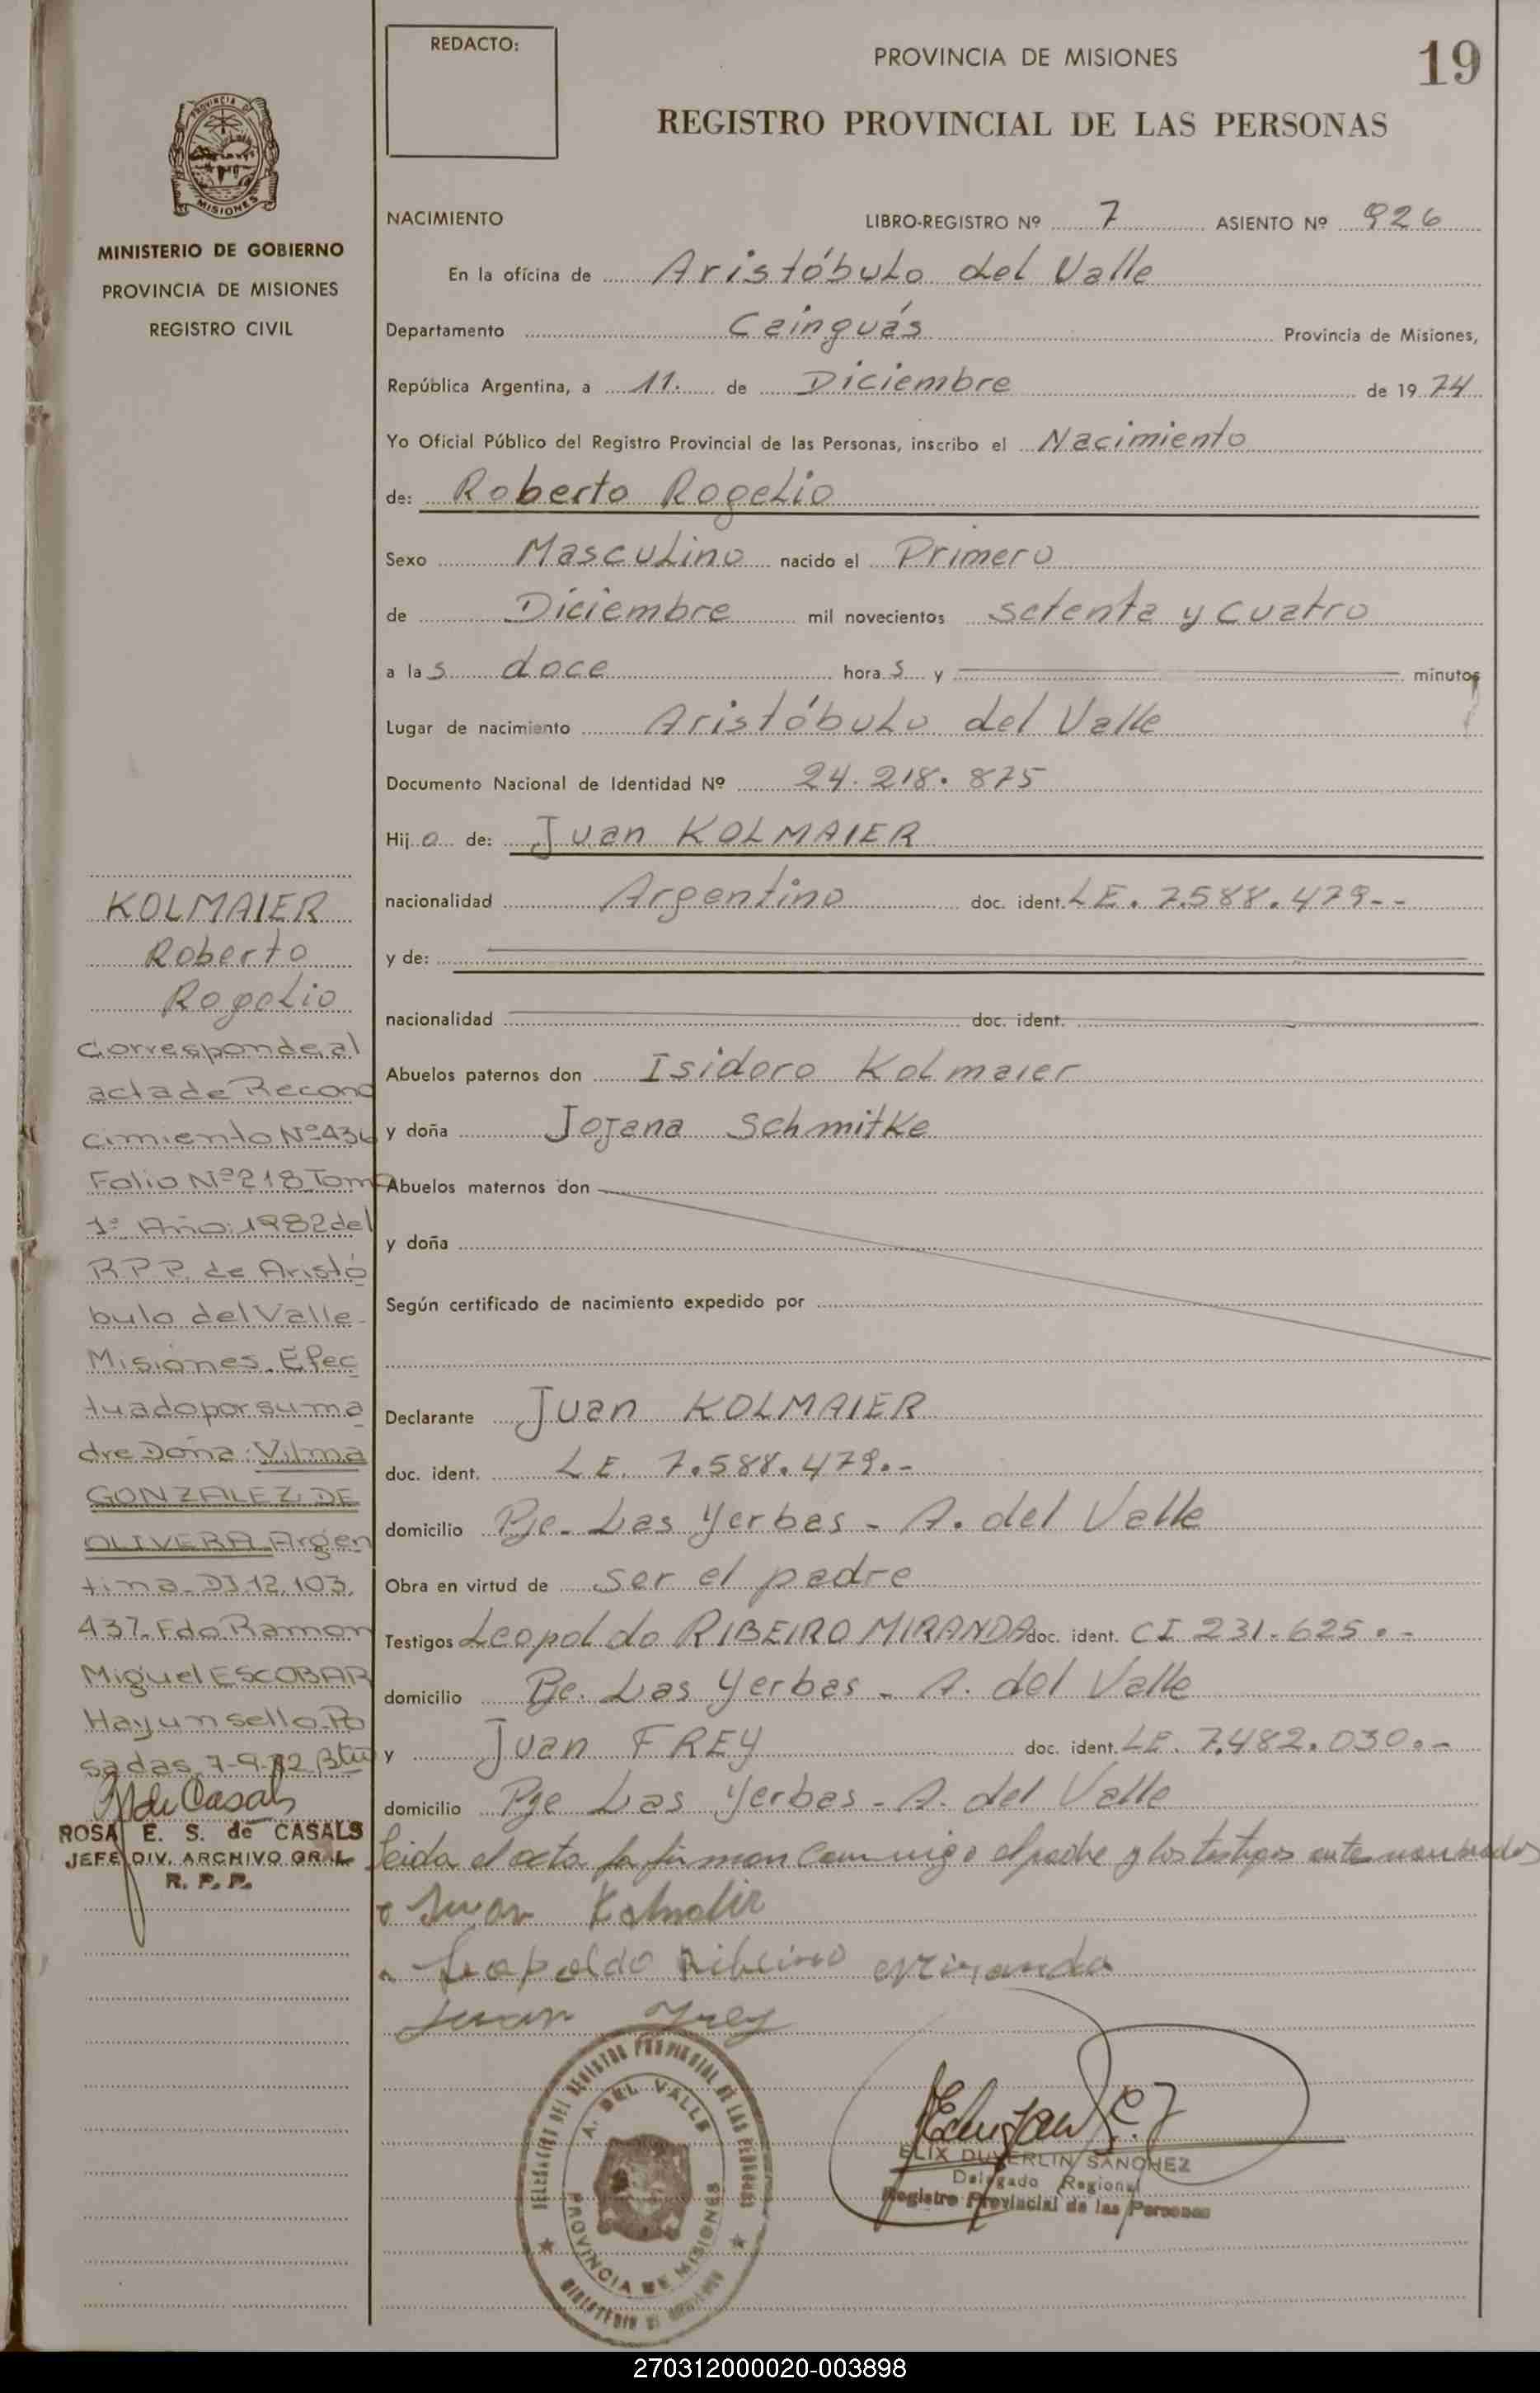 REDACTO:
PROVINCIA DE MISIONES
19
REGISTRO PROVINCIAL DE LAS PERSONAS
PROVINCIA DE
MISIONES
MINISTERIO DE GOBIERNO
PROVINCIA DE MISIONES
REGISTRO CIVIL
NACIMIENTO LIBRO-REGISTRO Nº 7 ASIENTO Nº 926
En la oficina de Aristóbulo del Valle
Departamento Cainguás Provincia de Misiones,
República Argentina, a 11. de Diciembre de 1974
Yo Oficial Público del Registro Provincial de las Personas, inscribo el Nacimiento
de: Roberto Rogelio
Sexo Masculino nacido el Primero
de Diciembre mil novecientos setenta y cuatro
a las doce horas y minutos
Lugar de nacimiento Aristóbulo del Valle
Documento Nacional de Identidad Nº 24.218.875
Hijo de: Juan KOLMAIER
nacionalidad Argentino doc. ident. LE. 7.588.479--
y de:
nacionalidad doc. ident.
Abuelos paternos don Isidoro Kolmaier
y doña Jojana Schmitke
Abuelos maternos don
y doña
Según certificado de nacimiento expedido por
Declarante Juan KOLMAIER
doc. ident. LE. 7.588.479.-
domicilio Pje. Las Yerbas - A. del Valle
Obra en virtud de ser el padre
Testigos Leopoldo RIBEIRO MIRANDA doc. ident. CI 231.625.-
domicilio Pje. Las Yerbas - A. del Valle
y Juan FREY doc. ident. LE. 7.482.030.-
domicilio Pje Las Yerbas - A. del Valle
leida el acta la firman conmigo el padre y los testigos ante nombrados
Juan Kolmaier
Leopoldo Ribeiro Miranda
Juan Frey
KOLMAIER
Roberto
Rogelio
Corresponde al
acta de Recono
cimiento Nº 436
Folio Nº 218 Tomo
1º Año: 1982 del
R.P.P. de Aristó
bulo del Valle
Misiones. Efec
tuado por su ma
dre Doña: Vilma
GONZALEZ DE
OLIVERA Argen
tina DI 12.103.
437. Fdo Ramon
Miguel ESCOBAR
Hay un sello. Po
sadas, 7-9-82
R de Casals
ROSA E. S. de CASALS
JEFE DIV. ARCHIVO GRAL
R. P. P.
DELEGACION DEL REGISTRO PROVINCIAL DE LAS PERSONAS
A. DEL VALLE
PROVINCIA DE MISIONES
MINISTERIO DE GOBIERNO
ELIX DUVERLIN SANCHEZ
Delegado Regional
Registro Provincial de las Personas
270312000020-003898